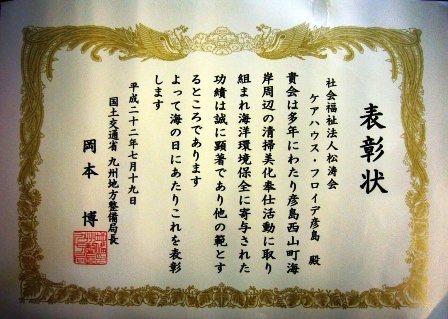 表彰状
社会福祉法人松涛会
ケアハウス・フロイデ彦島 殿
貴会は多年にわたり彦島西山町海
岸周辺の清掃美化奉仕活動に取り
組まれ海洋環境保全に寄与された
功績は誠に顕著であり他の範とす
るところであります
よって海の日にあたりこれを表彰
します
平成二十二年七月十九日
国土交通省 九州地方整備局長
岡本 博